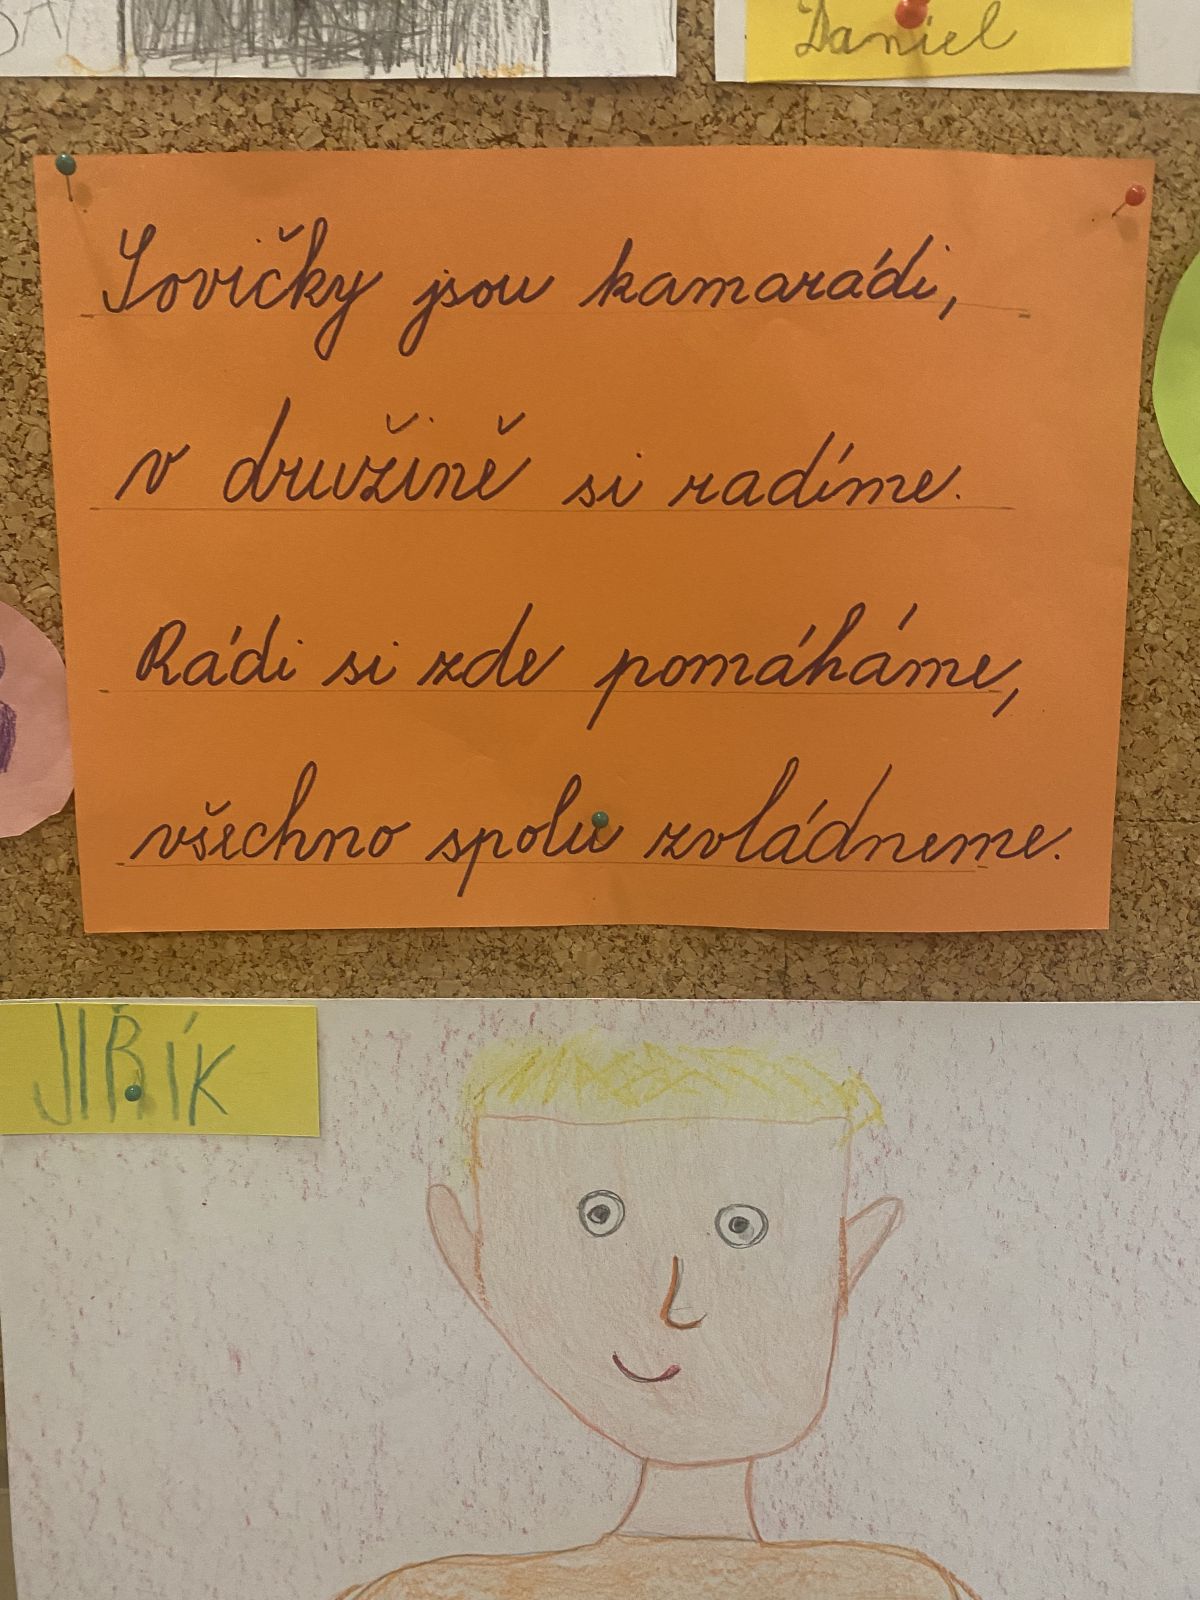 Daniel
Sovičky jsou kamarádi,
v družině si radíme.
Rádi si zde pomáháme,
všechno spolu zvládneme.
JIŘÍK